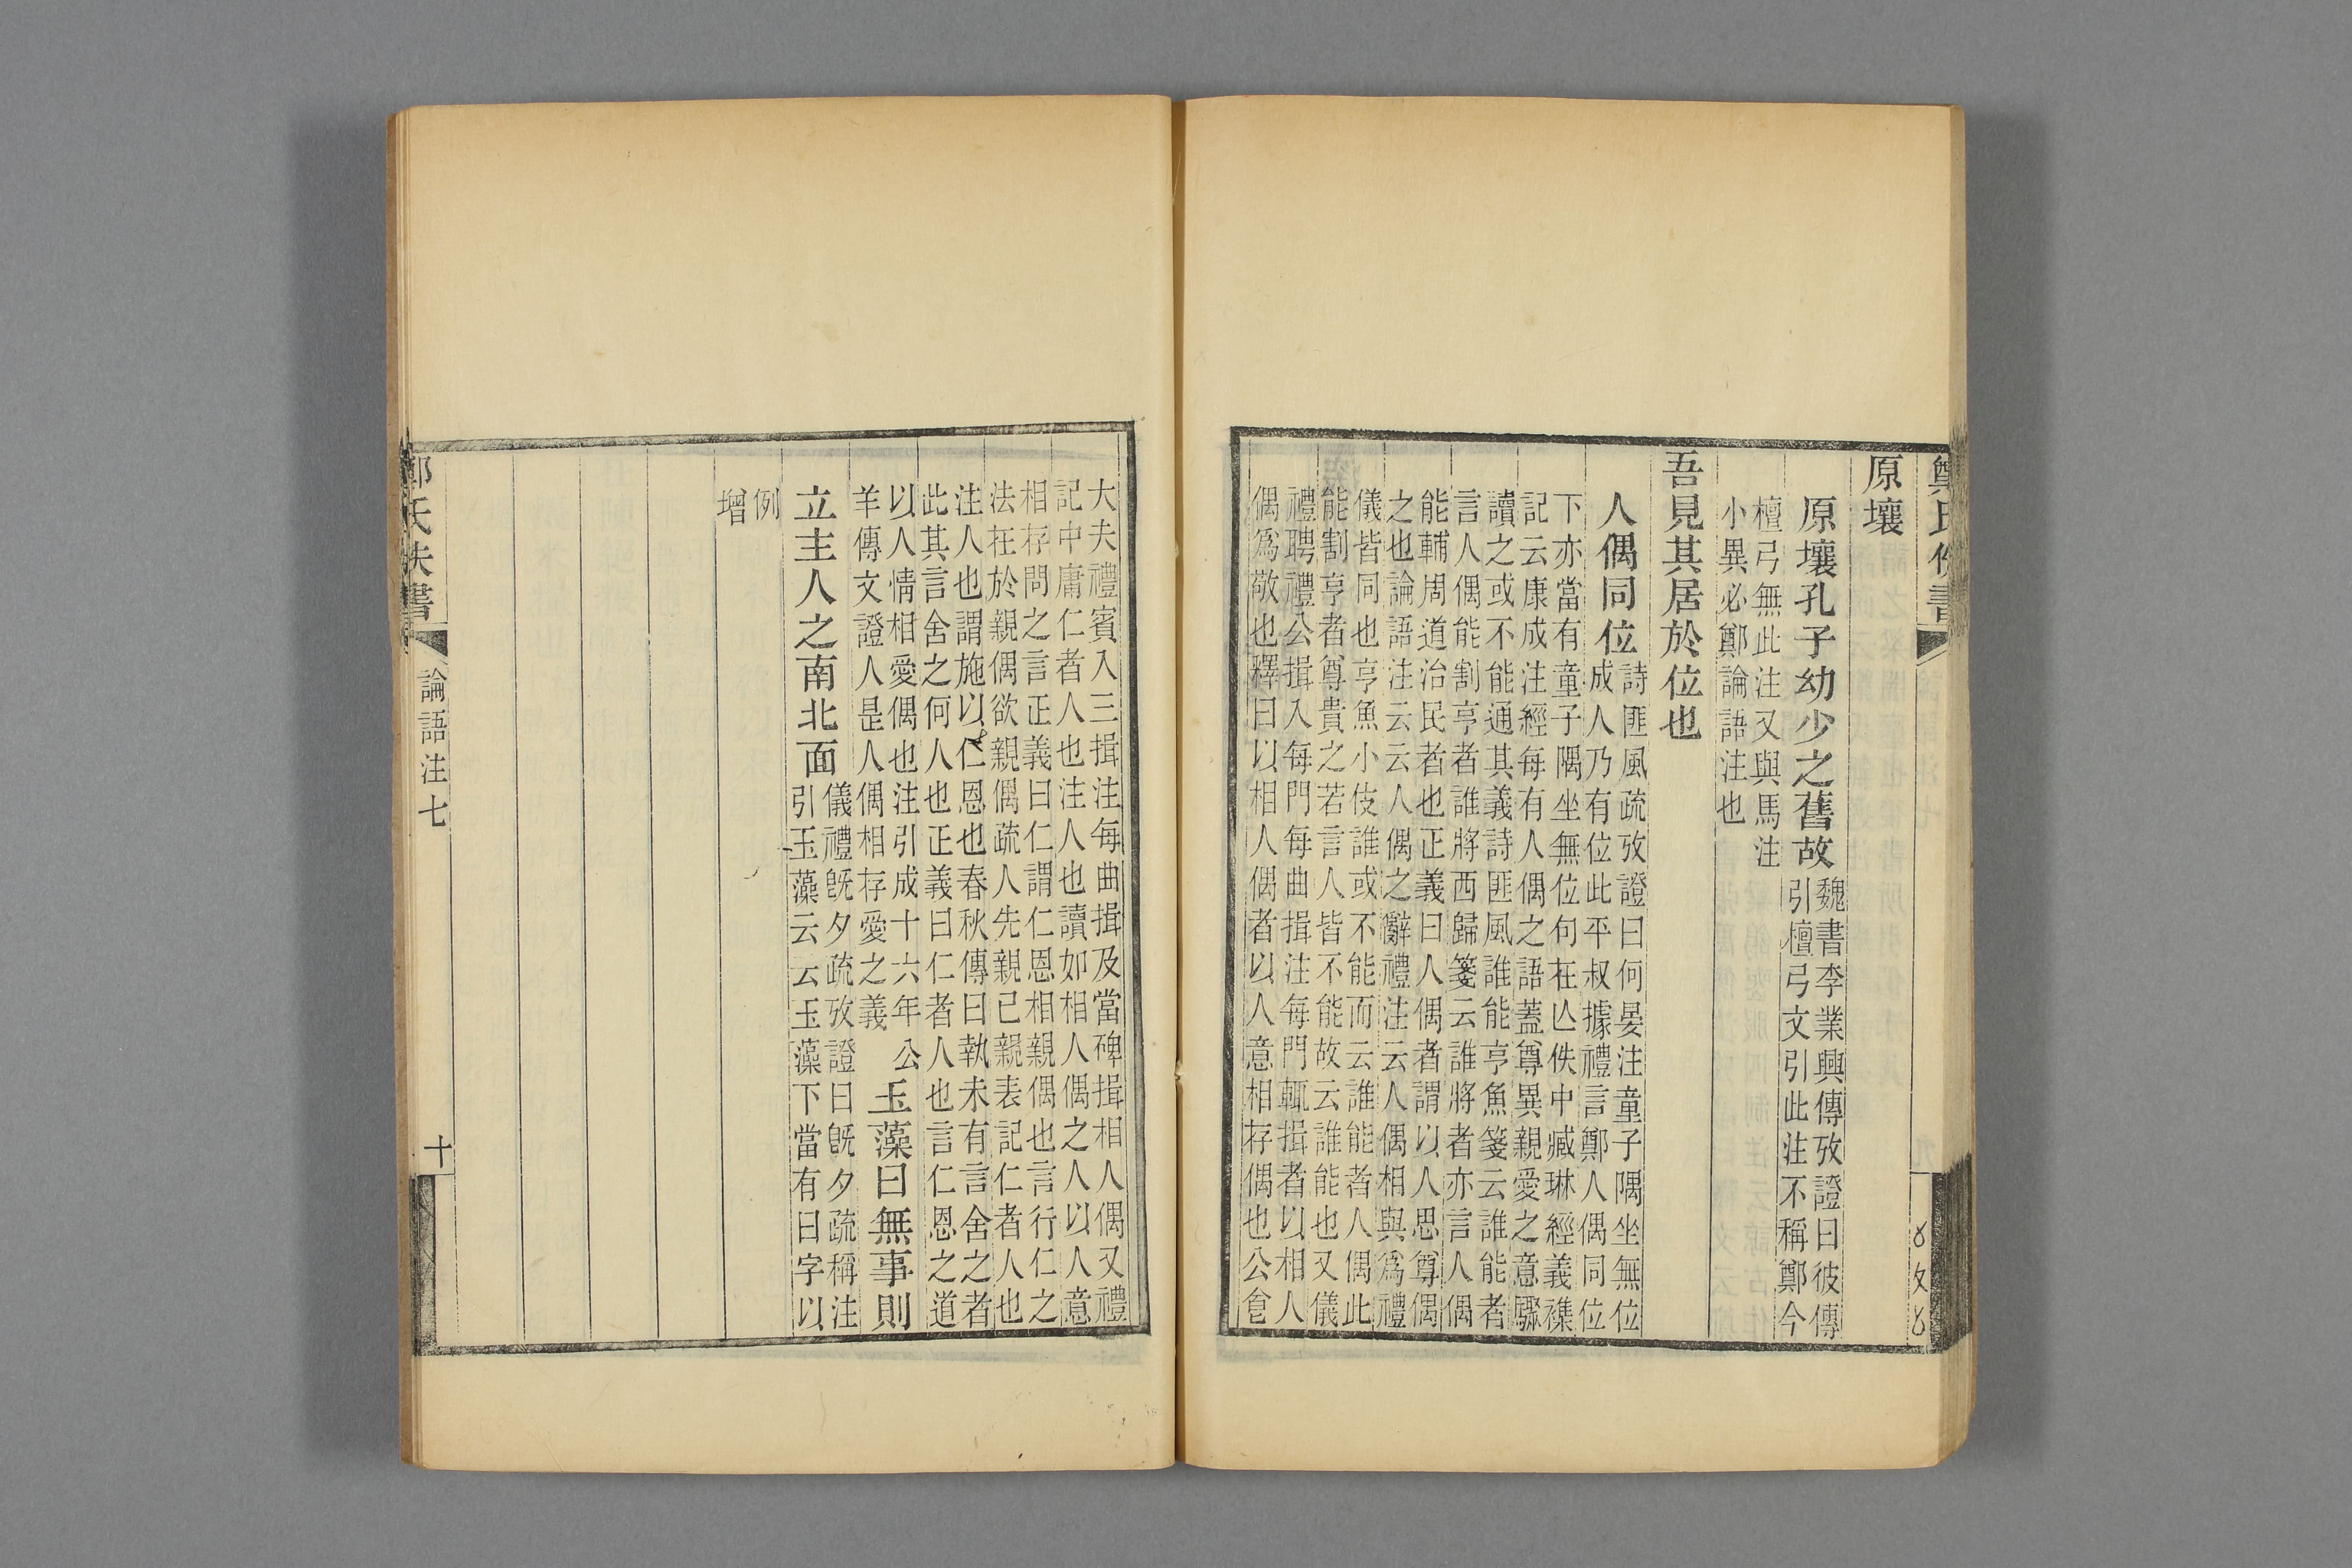 原壤
原壤孔子幼少之舊故
魏書李業興傳攷證曰彼傳
引檀弓文引此注不稱鄭今
檀弓無此注又與馬注
小異必鄭論語注也
吾見其居於位也
人偶同位
詩匪風疏攷證曰何晏注童子隅坐無位
成人乃有位此平叔據禮言鄭人偶同位
下亦當有童子隅坐無位句在亾佚中臧琳經義襍
記云康成注經每有人偶之語蓋尊異親愛之意驟
讀之或不能通其義詩匪風誰能亨魚箋云誰能者
言人偶能割亨者誰將西歸箋云誰將者亦言人偶
能輔周道治民者也正義曰人偶者謂以人思尊偶
之也論語注云云人偶之辭禮注云人偶相與爲禮
儀皆同也亨魚小伎誰或不能而云誰能者人偶此
能割亨者尊貴之若言人皆不能故云誰能也又儀
禮聘禮公揖入每門每曲揖注每門輒揖者以相人
偶爲敬也釋曰以相人偶者以人意相存偶也公食
大夫禮賓入三揖注每曲揖及當碑揖相人偶又禮
記中庸仁者人也注人也讀如相人偶之人以人意
相存問之言正義曰仁謂仁恩相親偶也言行仁之
法在於親偶欲親偶疏人先親己親表記仁者人也
注人也謂施以仁恩也春秋傳曰執未有言舍之者
此其言舍之何人也正義曰仁者人也言仁恩之道
以人情相愛偶也注引成十六年公
羊傳文證人是人偶相存愛之義
玉藻曰無事則
立主人之南北面
儀禮旣夕疏攷證曰旣夕疏稱注
引玉藻云云玉藻下當有曰字以
例
增
論語注七
十